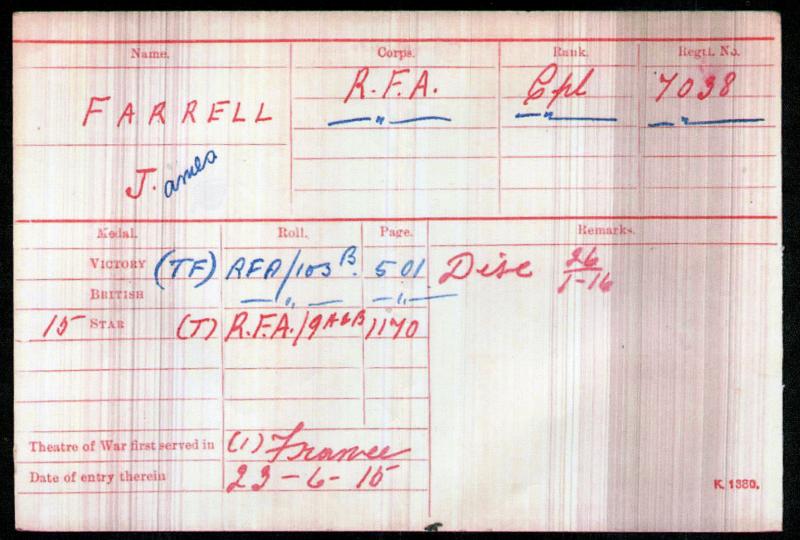 Name. Corps. Rank. Regtl. No.
FARRELL R.F.A. Cpl 7038
— " — — " — — " —
J. ames
Medal. Roll. Page. Remarks.
VICTORY (TF) RFA/103 B. 501 Disc 26/1-16
BRITISH — " — — " —
15 STAR (T) R.F.A./9A&B 1170
Theatre of War first served in (1) France
Date of entry therein 23-6-15
K. 1380.